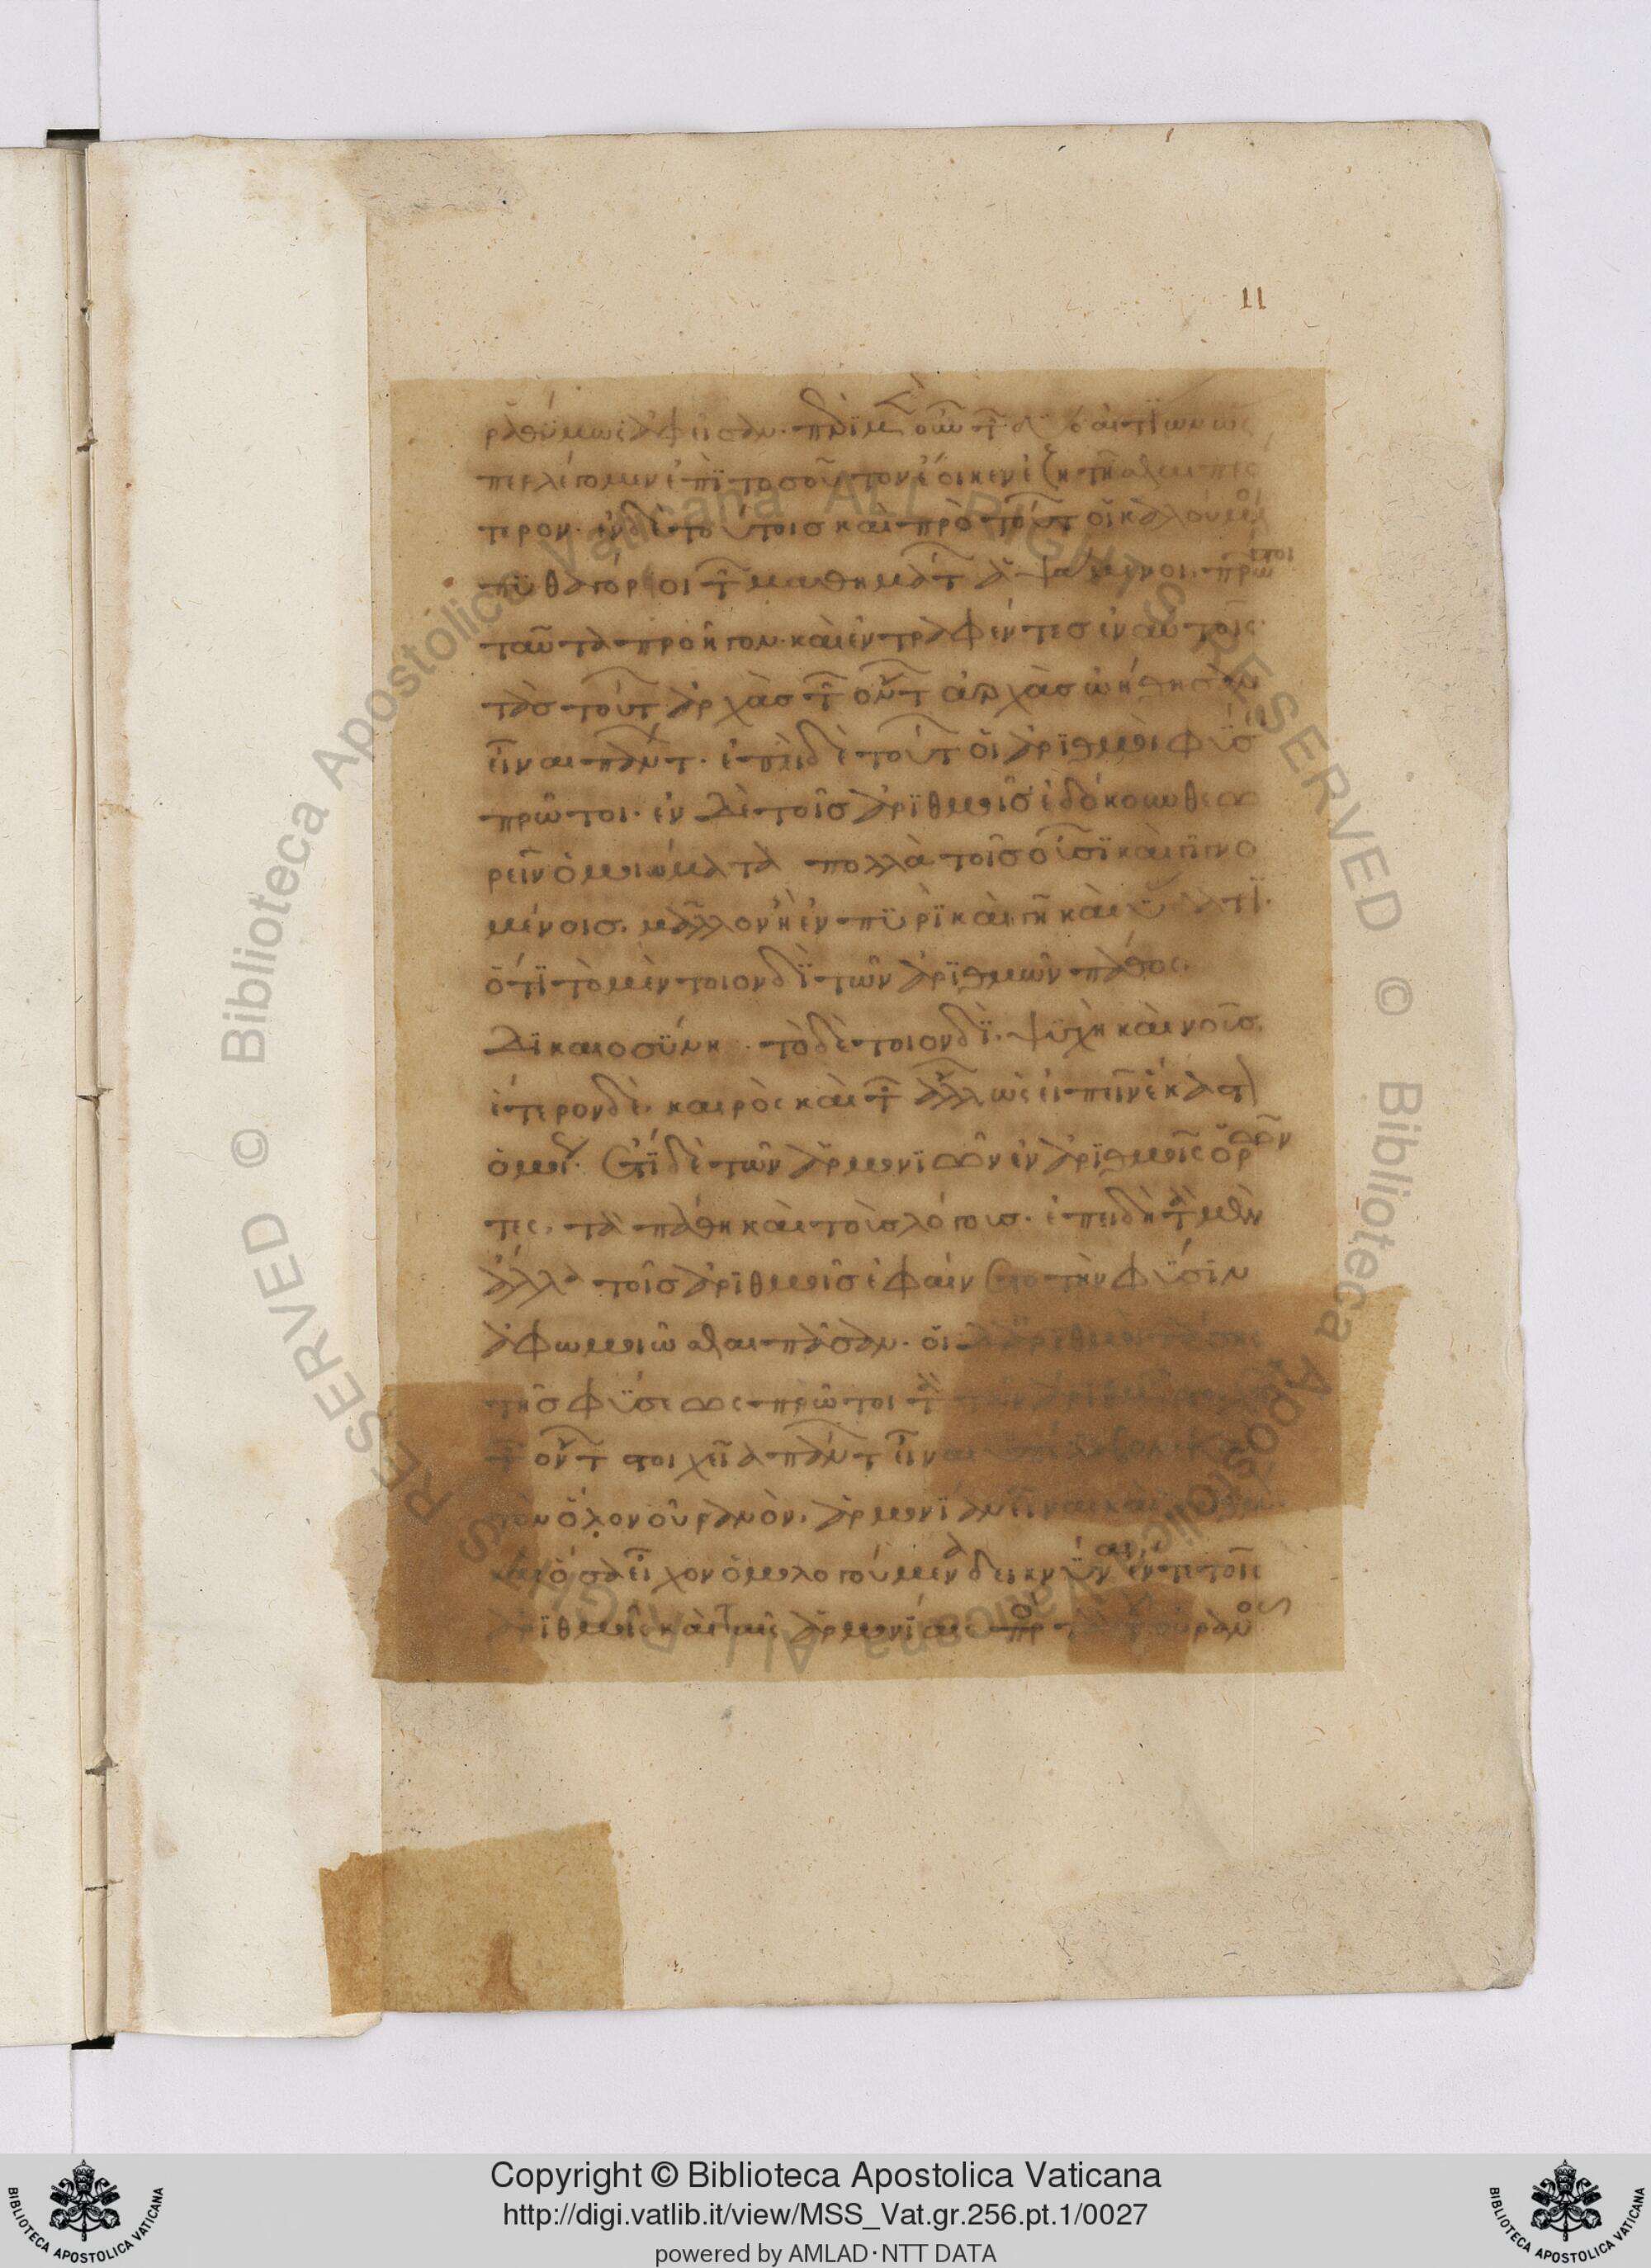 11
ῥαθύμως ἀφεῖσαν. περὶ μὲν οὖν τῶν δύο αἰτιῶν ὡς
περ λέγομεν ἐπὶ τοσοῦτον ἔοικεν ἐζητῆσθαι πρό
τερον. ἐν δὲ τούτοις καὶ πρὸ τούτων οἱ καλούμενοι
πυθαγόρειοι τῶν μαθημάτων ἁψάμενοι πρῶτοι
ταῦτα προῆγον. καὶ ἐντραφέντες ἐν αὐτοῖς
τὰς τούτων ἀρχὰς τῶν ὄντων ἀρχὰς ᾠήθησαν
εἶναι πάντων. ἐπεὶ δὲ τούτων οἱ ἀριθμοὶ φύσει
πρῶτοι. ἐν δὲ τοῖς ἀριθμοῖς ἐδόκουν θεω
ρεῖν ὁμοιώματα πολλὰ τοῖς οὖσι καὶ γιγνο
μένοις. μᾶλλον ἢ ἐν πυρὶ καὶ γῇ καὶ ὕδατι.
ὅτι τὸ μὲν τοιονδὶ τῶν ἀριθμῶν πάθος.
δικαιοσύνη. τὸ δὲ τοιονδὶ. ψυχὴ καὶ νοῦς.
ἕτερον δὲ. καιρὸς καὶ τῶν ἄλλων ὡς εἰπεῖν ἕκαστον
ὁμοίως. ἔτι δὲ τῶν ἁρμονιῶν ἐν ἀριθμοῖς ὁρῶν
τες. τὰ πάθη καὶ τοὺς λόγους. ἐπειδὴ τὰ μὲν
ἄλλα τοῖς ἀριθμοῖς ἐφαίνετο τὴν φύσιν
ἀφωμοιῶσθαι πᾶσαν. οἱ δὲ ἀριθμοὶ πάσης
τῆς φύσεως πρῶτοι τὰ τῶν ἀριθμῶν
τῶν ὄντων στοιχεῖα πάντων εἶναι ὑπέλαβον καὶ
τὸν ὅλον οὐρανὸν. ἁρμονίαν εἶναι καὶ ἀριθμόν.
καὶ ὅσα εἶχον ὁμολογούμενα δεικνύναι ἔν τε τοῖς
ἀριθμοῖς καὶ ταῖς ἁρμονίαις πρὸς τὰ τοῦ οὐρανοῦ
Copyright © Biblioteca Apostolica Vaticana
http://digi.vatlib.it/view/MSS_Vat.gr.256.pt.1/0027
powered by AMLAD·NTT DATA
BIBLIOTECA APOSTOLICA VATICANA
BIBLIOTECA APOSTOLICA VATICANA
© Biblioteca Apostolica Vaticana ALL RIGHTS RESERVED
© Biblioteca Apostolica Vaticana ALL RIGHTS RESERVED